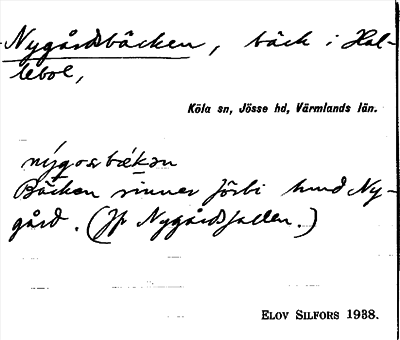 Nygårdsbäcken, bäck i Hal-
lebol,
Köla sn, Jösse hd, Värmlands län.
nýgoṣbækən
Bäcken rinner förbi hmd Ny-
gård. (Jfr Nygårdsfallen.)
ELOV SILFORS 1938.